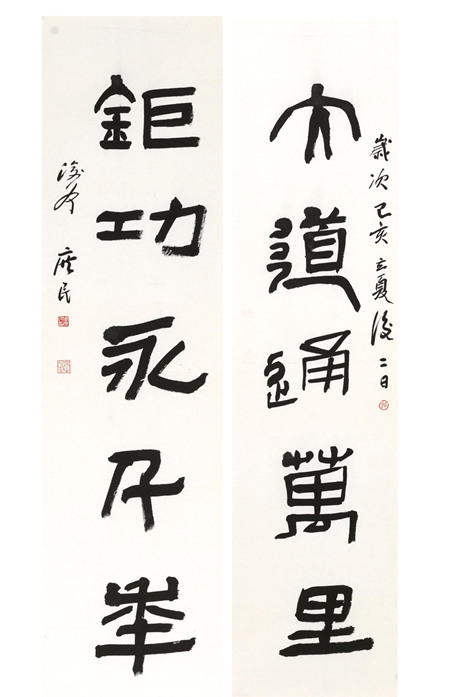 大道通萬里
歲次己亥立夏後二日
鉅功永千年
民